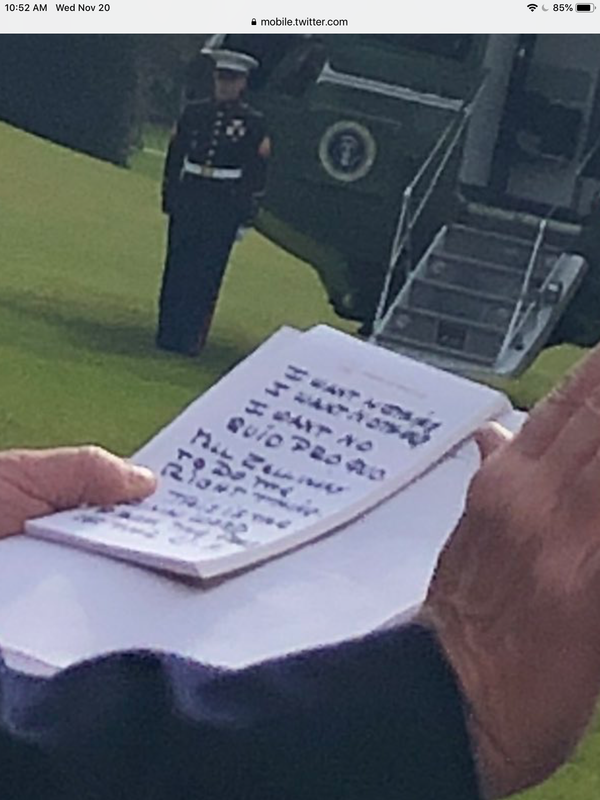 10:52 AM Wed Nov 20
85%
mobile.twitter.com
I WANT NOTHING
I WANT NOTHING
I WANT NO
QUID PRO QUO.
TELL ZELLINSKY
TO DO THE
RIGHT THING.
THIS IS THE